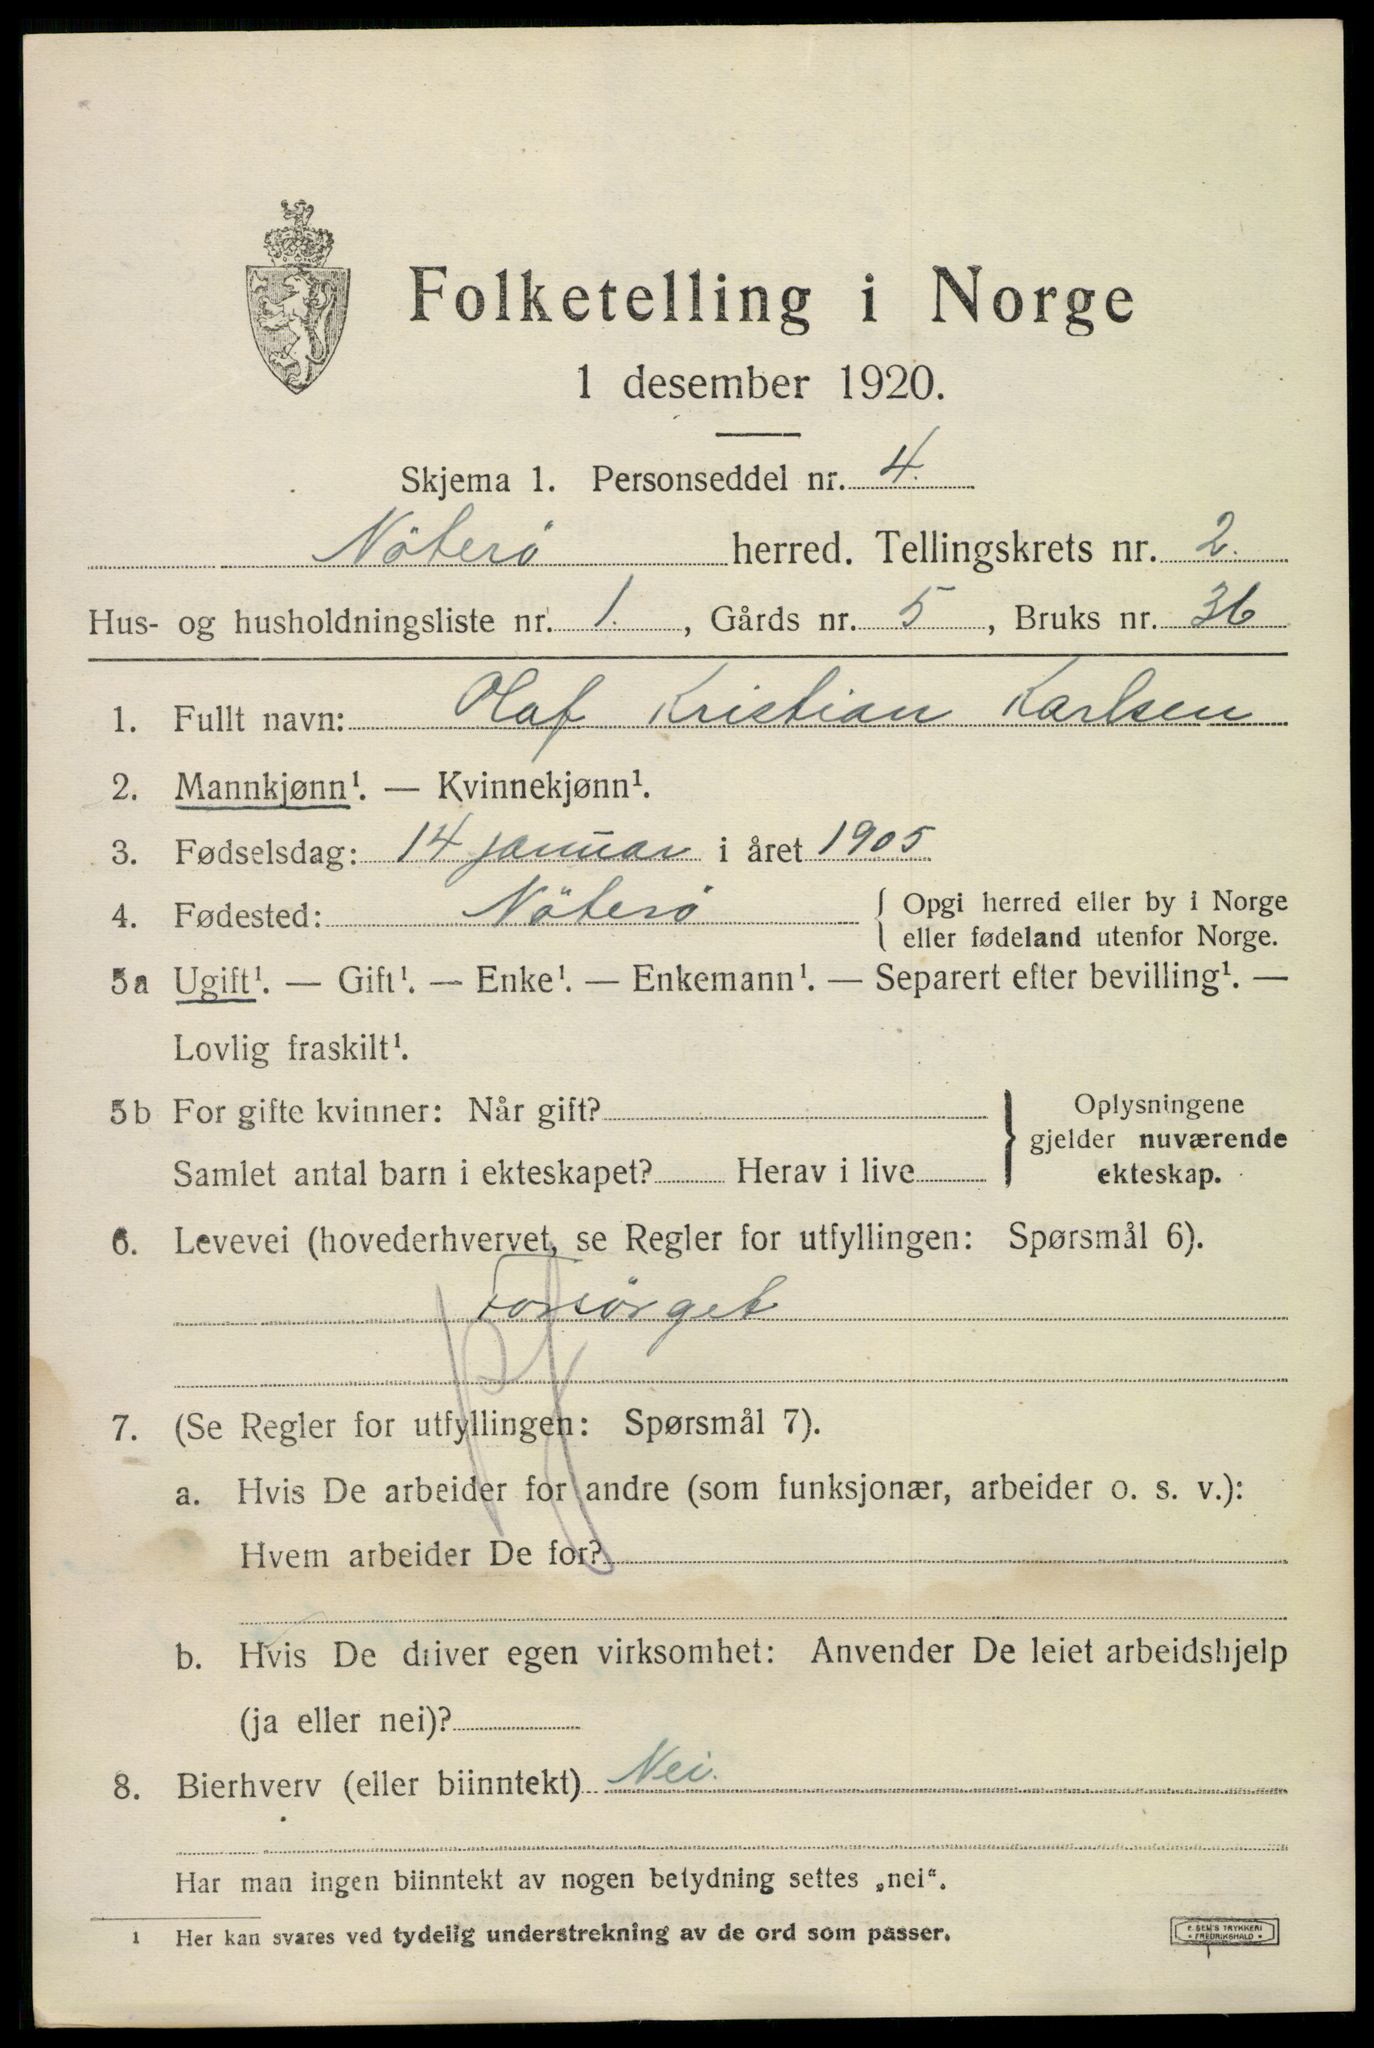 Folketelling i Norge
1 desember 1920.
Skjema 1. Personseddel nr. 4.
Nöterö herred. Tellingskrets nr. 2.
Hus- og husholdningsliste nr. 1., Gårds nr. 5, Bruks nr. 36
1. Fullt navn: Olaf Kristian Karlsen
2. Mannkjønn¹. — Kvinnekjønn¹.
3. Fødselsdag: 14 januar i året 1905
4. Fødested: Nöterö { Opgi herred eller by i Norge
eller fødeland utenfor Norge.
5a Ugift¹. — Gift¹. — Enke¹. — Enkemann¹. — Separert efter bevilling¹. —
Lovlig fraskilt¹.
5b For gifte kvinner: Når gift?
Samlet antal barn i ekteskapet? Herav i live
} Oplysningene
gjelder nuværende
ekteskap.
6. Levevei (hovederhvervet, se Regler for utfyllingen: Spørsmål 6).
Forsörget
7. (Se Regler for utfyllingen: Spørsmål 7).
a. Hvis De arbeider for andre (som funksjonær, arbeider o. s. v.):
Hvem arbeider De for?
b. Hvis De driver egen virksomhet: Anvender De leiet arbeidshjelp
(ja eller nei)?
8. Bierhverv (eller biinntekt) Nei.
Har man ingen biinntekt av nogen betydning settes „nei“.
1 Her kan svares ved tydelig understrekning av de ord som passer.
E. SEM'S TRYKKERI
* FREDRIKSHALD *